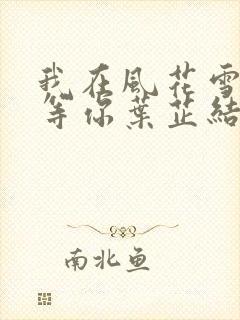 我在風花雪
等你葉芷結
南北鱼